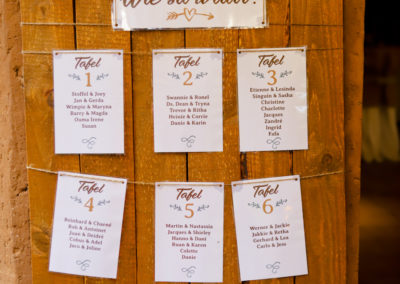 Tafel
1
Stoffel & Joey
Jan & Gerda
Wimpie & Maryna
Barry & Magda
Ouma Irene
Susan
Tafel
2
Swannie & Ronel
Ds. Dean & Tryna
Trevor & Ritha
Heinie & Corrie
Danie & Karin
Tafel
3
Etienne & Lesinda
Singuin & Sasha
Christine
Charlotte
Jacques
Zandré
Ingrid
Fafa
Tafel
4
Reinhard & Charné
Rob & Antoinet
Juan & Deidré
Cobus & Adel
Jaco & Joline
Tafel
5
Martin & Nastassia
Jacques & Shirley
Hanno & Dani
Ruan & Karon
Colette
Danie
Tafel
6
Werner & Jackie
Jukkie & Retha
Gerhard & Lea
Carlo & Jess